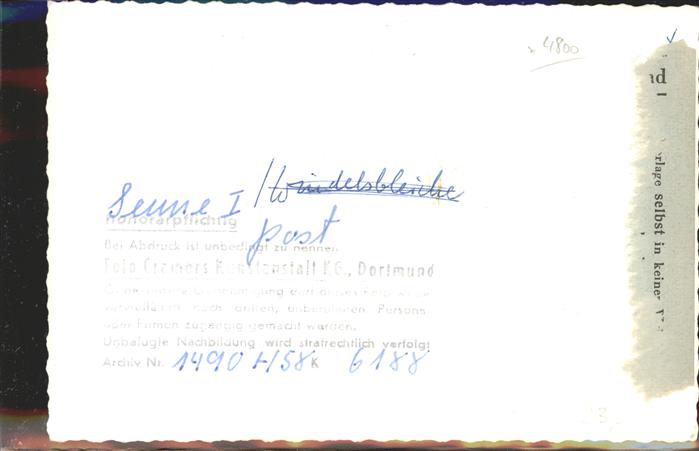 4800
Senne I / Windelsbleiche
post
Honorarpflichtig
Bei Abdruck ist unbedingt zu nennen
Foto Cramers Kunstanstalt KG., Dortmund
Ohne unsere Genehmigung darf dieses Foto weder
vervielfältigt noch dritten, unberufenen Personen
oder Firmen zugängig gemacht werden.
Unbefugte Nachbildung wird strafrechtlich verfolgt
Archiv Nr. 1490 H/58 K 6188
nd
rlage selbst in keiner